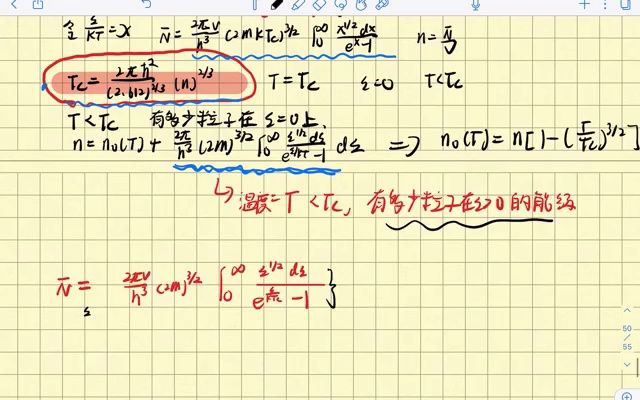 令 ε/KT = x   N̄ = 2πV/h³ (2mKTc)^3/2 ∫₀^∞ x^1/2 dx / e^x-1   n = N̄/V
Tc = 2πħ² / (2.612)^2/3 (n)^2/3   T = Tc   ε=0   T<Tc
T < Tc   有多少粒子在 ε=0上,
n = n₀(T) + 2π/h³ (2m)^3/2 ∫₀^∞ ε^1/2 dε / e^ε/kT -1 dε => n₀(T) = n[1-(T/Tc)^3/2]
↳ 温度=T<Tc, 有多少粒子在ε>0的能级
N̄ε = 2πV/h³ (2m)^3/2 ∫₀^∞ ε^1/2 dε / e^ -1 }
50
55